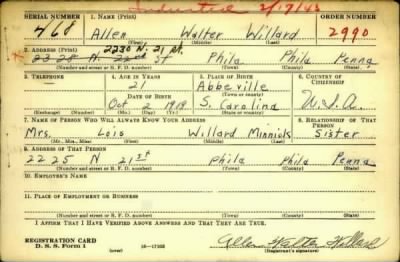 Inducted 2/17/43
SERIAL NUMBER 1. NAME (Print) ORDER NUMBER
468 Allen Walter Willard 2990
(First) (Middle) (Last)
2. ADDRESS (Print) 2230 N. 21 St.
2328 N. St Phila Phila Penna
(Number and street or R. F. D. number) (Town) (County) (State)
3. TELEPHONE 4. AGE IN YEARS 5. PLACE OF BIRTH 6. COUNTRY OF CITIZENSHIP
21 Abbeville
DATE OF BIRTH (Town or county)
Oct 2 1919 S. Carolina U.S.A.
(Exchange) (Number) (Mo.) (Day) (Yr.) (State or country)
7. NAME OF PERSON WHO WILL ALWAYS KNOW YOUR ADDRESS 8. RELATIONSHIP OF THAT PERSON
Mrs. Lois Willard Minnick Sister
(Mr., Mrs., Miss) (First) (Middle) (Last)
9. ADDRESS OF THAT PERSON
2225 N 21st Phila Phila Penna
(Number and street or R. F. D. number) (Town) (County) (State)
10. EMPLOYER'S NAME
11. PLACE OF EMPLOYMENT OR BUSINESS
(Number and street or R. F. D. number) (Town) (County) (State)
I AFFIRM THAT I HAVE VERIFIED ABOVE ANSWERS AND THAT THEY ARE TRUE.
REGISTRATION CARD
D. S. S. Form 1 (over) 16-17105 Allen Walter Willard
(Registrant's signature)